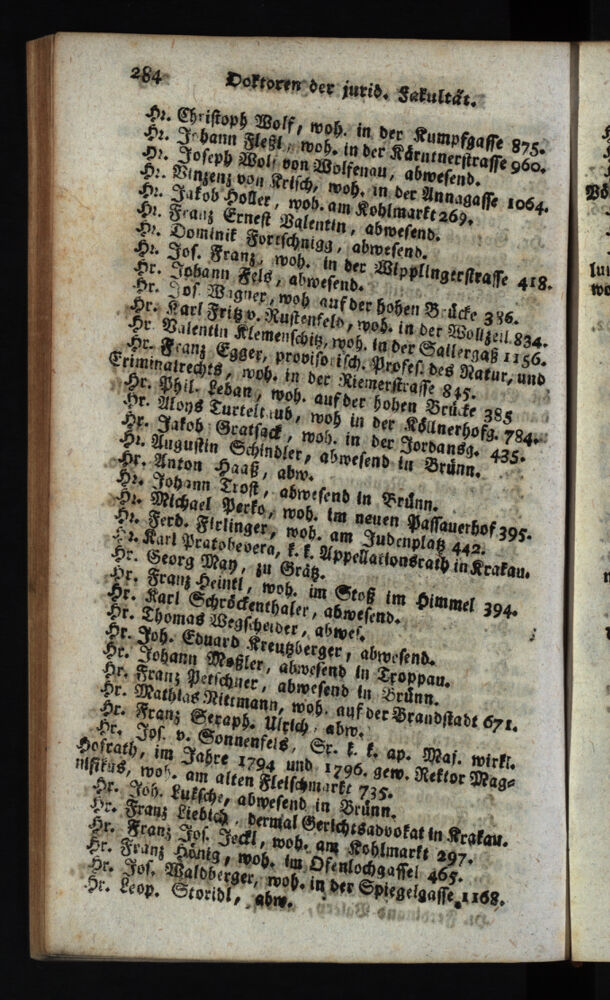 284 Doktoren der jurid. Fakultät.
Hr. Christoph Wolf, woh. in der Kumpfgasse 875.
Hr. Johann Fleßl, woh. in der Kärntnerstrasse 960.
Hr. Joseph Wolf von Wolfenau, abwesend.
Hr. Vinzenz von Krisch, woh. in der Annagasse 1064.
Hr. Jakob Holler, woh. am Kohlmarkt 269.
Hr. Franz Ernest Valentin, abwesend.
Hr. Dominik Fortschnigg, abwesend.
Hr. Jos. Franz, woh. in der Wipplingerstrasse 418.
Hr. Johann Fels, abwesend.
Hr. Jos. Wagner, woh auf der hohen Brücke 386.
Hr. Karl Fritz v. Rustenfeld, woh. in der Wollzeil 834.
Hr. Valentin Klemenschitz, woh. in der Sallergaß 1156.
Hr. Franz Egger, provisorisch. Profes. des Natur, und
Criminalrechts, woh. in der Riemerstrasse 845.
Hr. Phil. Leban, woh. auf der hohen Brücke 385
Hr. Aloys Turteltaub, woh in der Köllnerhofg. 784.
Hr. Jakob Gratsack, woh. in der Jordansg. 435.
Hr. Augustin Schindler, abwesend in Brünn.
Hr. Anton Haaß, abw.
Hr. Johann Trost, abwesend in Brünn.
Hr. Michael Perko, woh. im neuen Passauerhof 395.
Hr. Ferd. Firlinger, woh. am Judenplatz 442.
Hr. Karl Pratobevera, k. k. Appellationsrath in Krakau.
Hr. Georg May, zu Grätz.
Hr. Franz Heintl, woh. im Stoß im Himmel 394.
Hr. Karl Schröckenthaler, abwesend.
Hr. Thomas Wegscheider, abwes.
Hr. Joh. Eduard Kreutzberger, abwesend.
Hr. Johann Moßler, abwesend in Troppau.
Hr. Franz Petschner, abwesend in Brünn.
Hr. Mathias Rittmann, woh. auf der Brandstadt 671.
Hr. Franz Seraph. Ulrich, abw.
Hr. Jos. v. Sonnenfels, Sr. k. k. ap. Maj. wirkl.
Hofrath, im Jahre 1794 und 1796. gew. Rektor Mag-
nifikus, woh. am alten Fleischmarkt 735.
Hr. Joh. Luksche, abwesend in Brünn.
Hr. Franz Liebich, dermal Gerichtsadvokat in Krakau.
Hr. Franz Jos. Jeckl, woh. am Kohlmarkt 297.
Hr. Franz Hönig, woh. im Ofenlochgassel 465.
Hr. Jos. Waldberger, woh. in der Spiegelgasse 1168.
Hr. Leop. Storidl, abw.